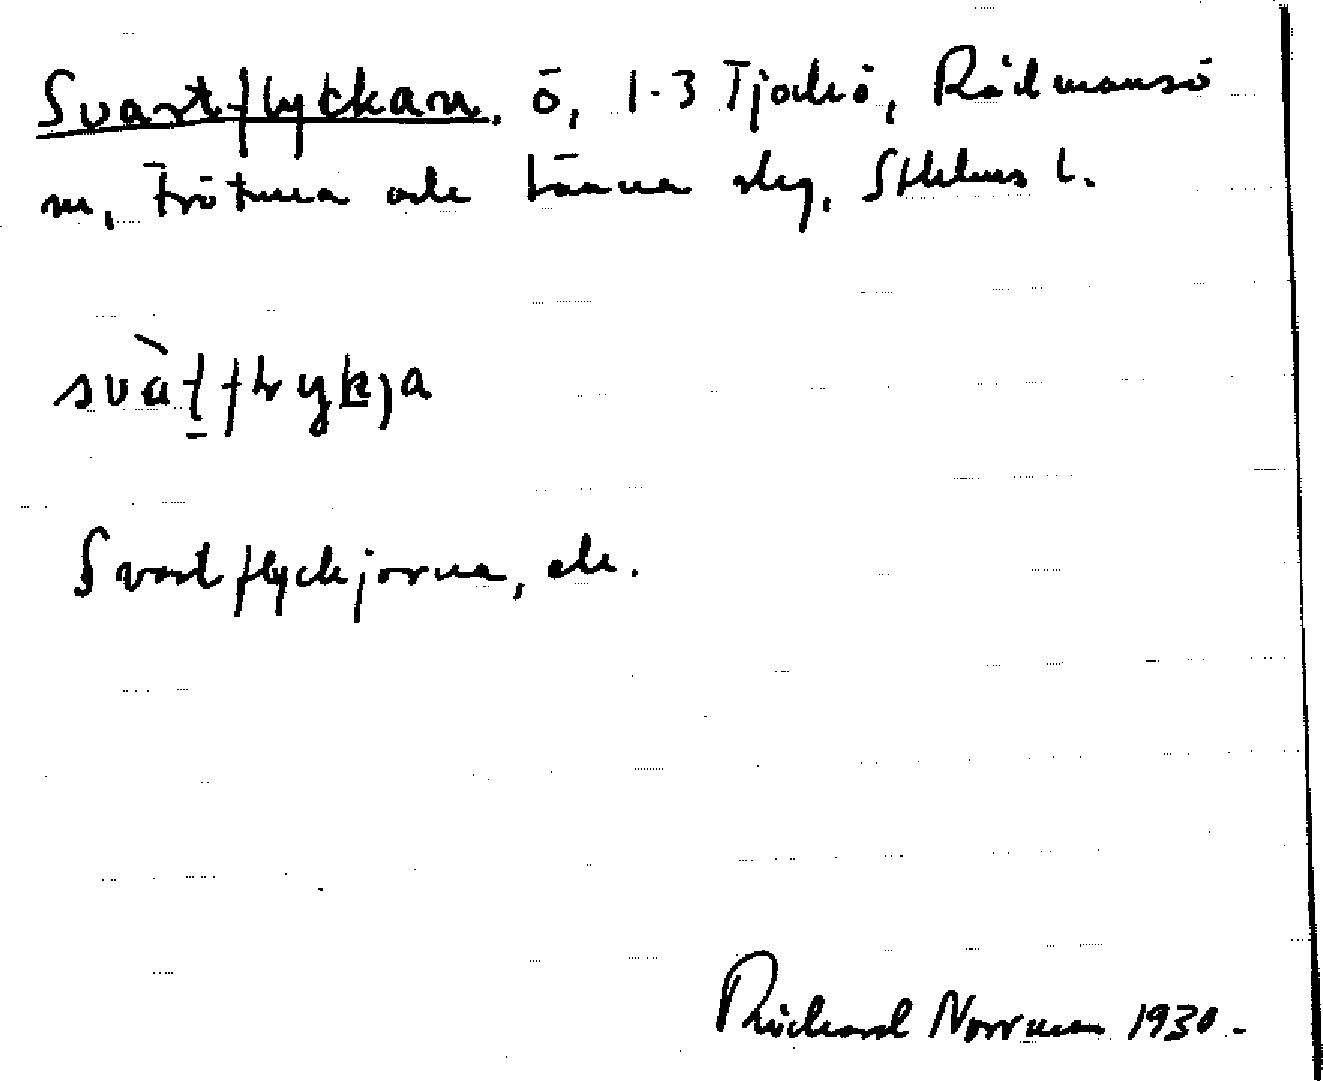 Svartflyckan, ö, 1-3 Tjockö, Rådmansö
sn, Frötuna och Länna slg, Sthlms l.
Svartflyckjorna, ele.
Richard Norrman 1930.-